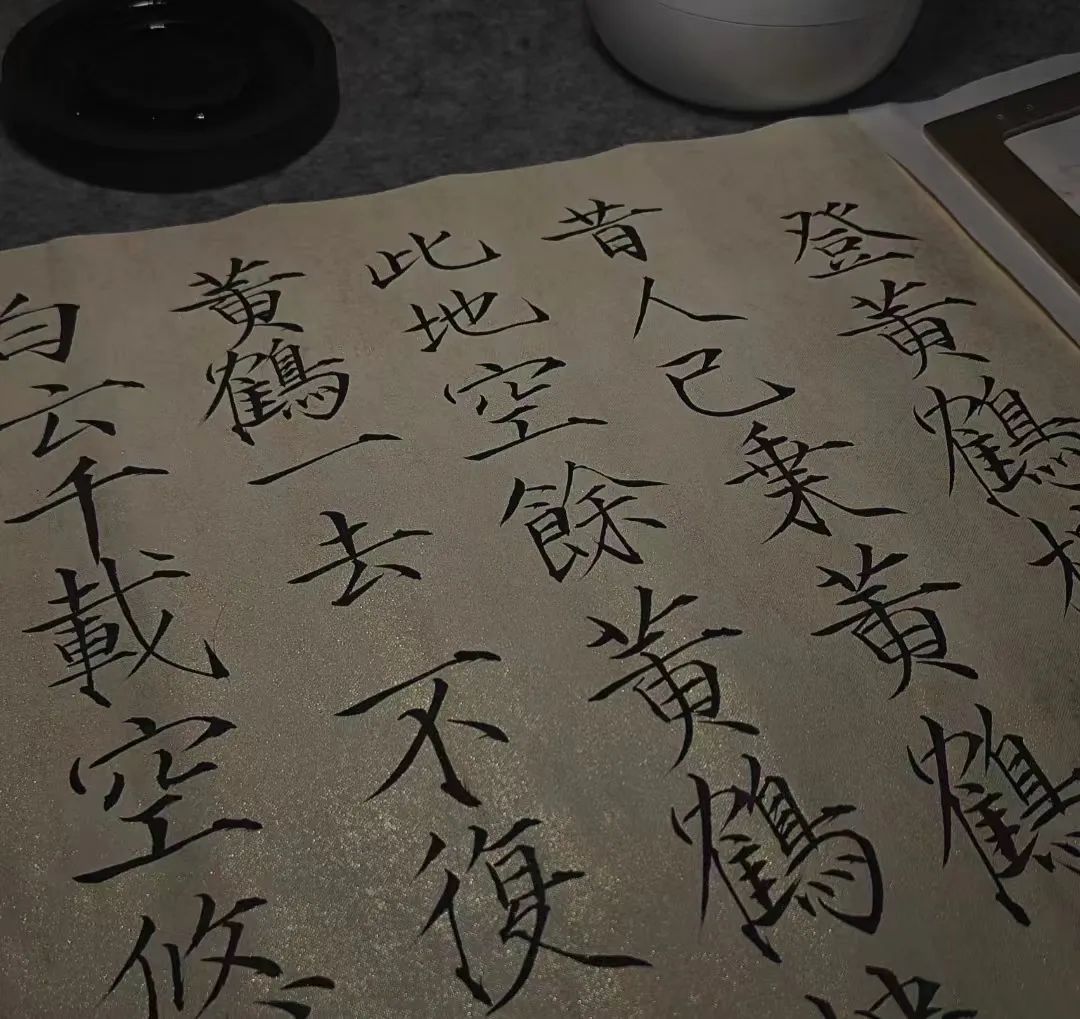 登黃鶴
昔人已乘黃鶴
此地空餘黃鶴樓
黃鶴一去不復
白云千載空悠